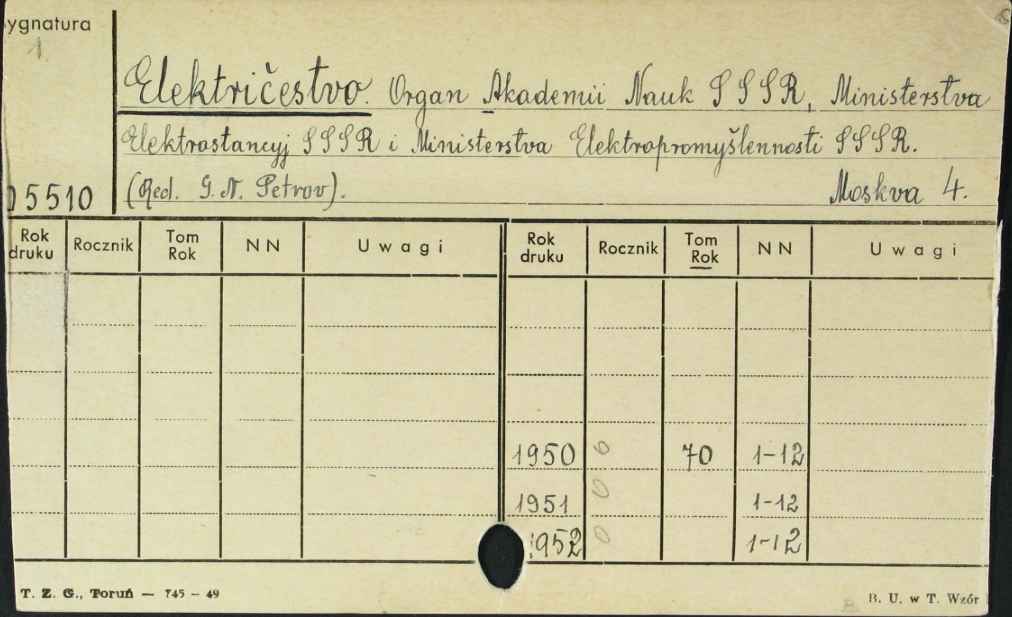 ygnatura
1
Električestvo. Organ Akademii Nauk SSSR, Ministerstva
Elektrostancyj SSSR i Ministerstva Elektropromyšlennosti SSSR.
05510 (Red. G. N. Petrov). Moskva 4.
Rok druku Rocznik Tom Rok NN Uwagi Rok druku Rocznik Tom Rok NN Uwagi
1950 0 70 1-12
1951 0 1-12
1952 0 1-12
T. Z. G., Toruń — 745 – 49 B. U. w T. Wzór